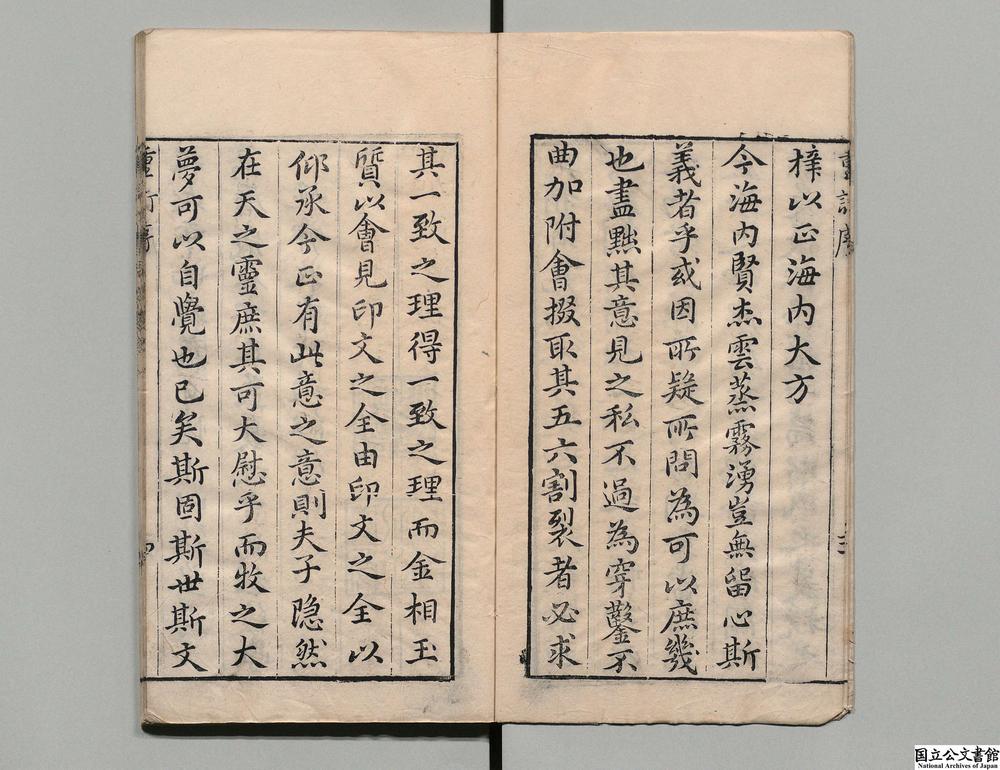 梓以正海内大方
今海内賢杰雲蒸霧湧豈無留心斯
義者乎或因所疑所問為可以庶幾
也盡黜其意見之私不過為穿鑿不
曲加附會掇取其五六割裂者必求
其一致之理得一致之理而金相玉
質以會見印文之全由印文之全以
仰承今正有此意之意則夫子隐然
在天之靈庶其可大慰乎而牧之大
夢可以自覺也已矣斯固斯世斯文
国立公文書館
National Archives of Japan